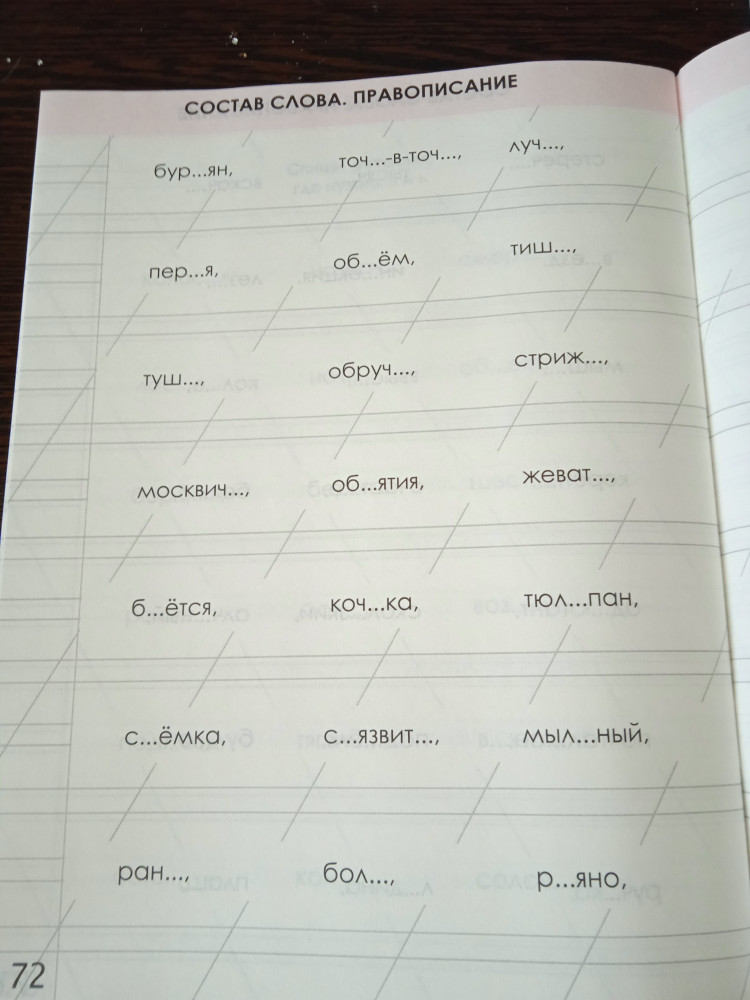 СОСТАВ СЛОВА. ПРАВОПИСАНИЕ
бур...ян, точ...-в-точ..., луч...,
пер...я, об...ём, тиш...,
туш..., обруч..., стриж...,
москвич..., об...ятия, жеват...,
б...ётся, коч...ка, тюл...пан,
с...ёмка, с...язвит..., мыл...ный,
ран..., бол..., р...яно,
72